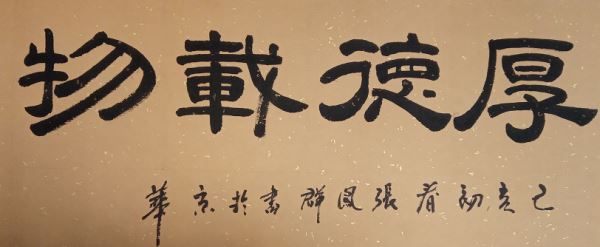 厚德載物
己亥初春張國群書於京華